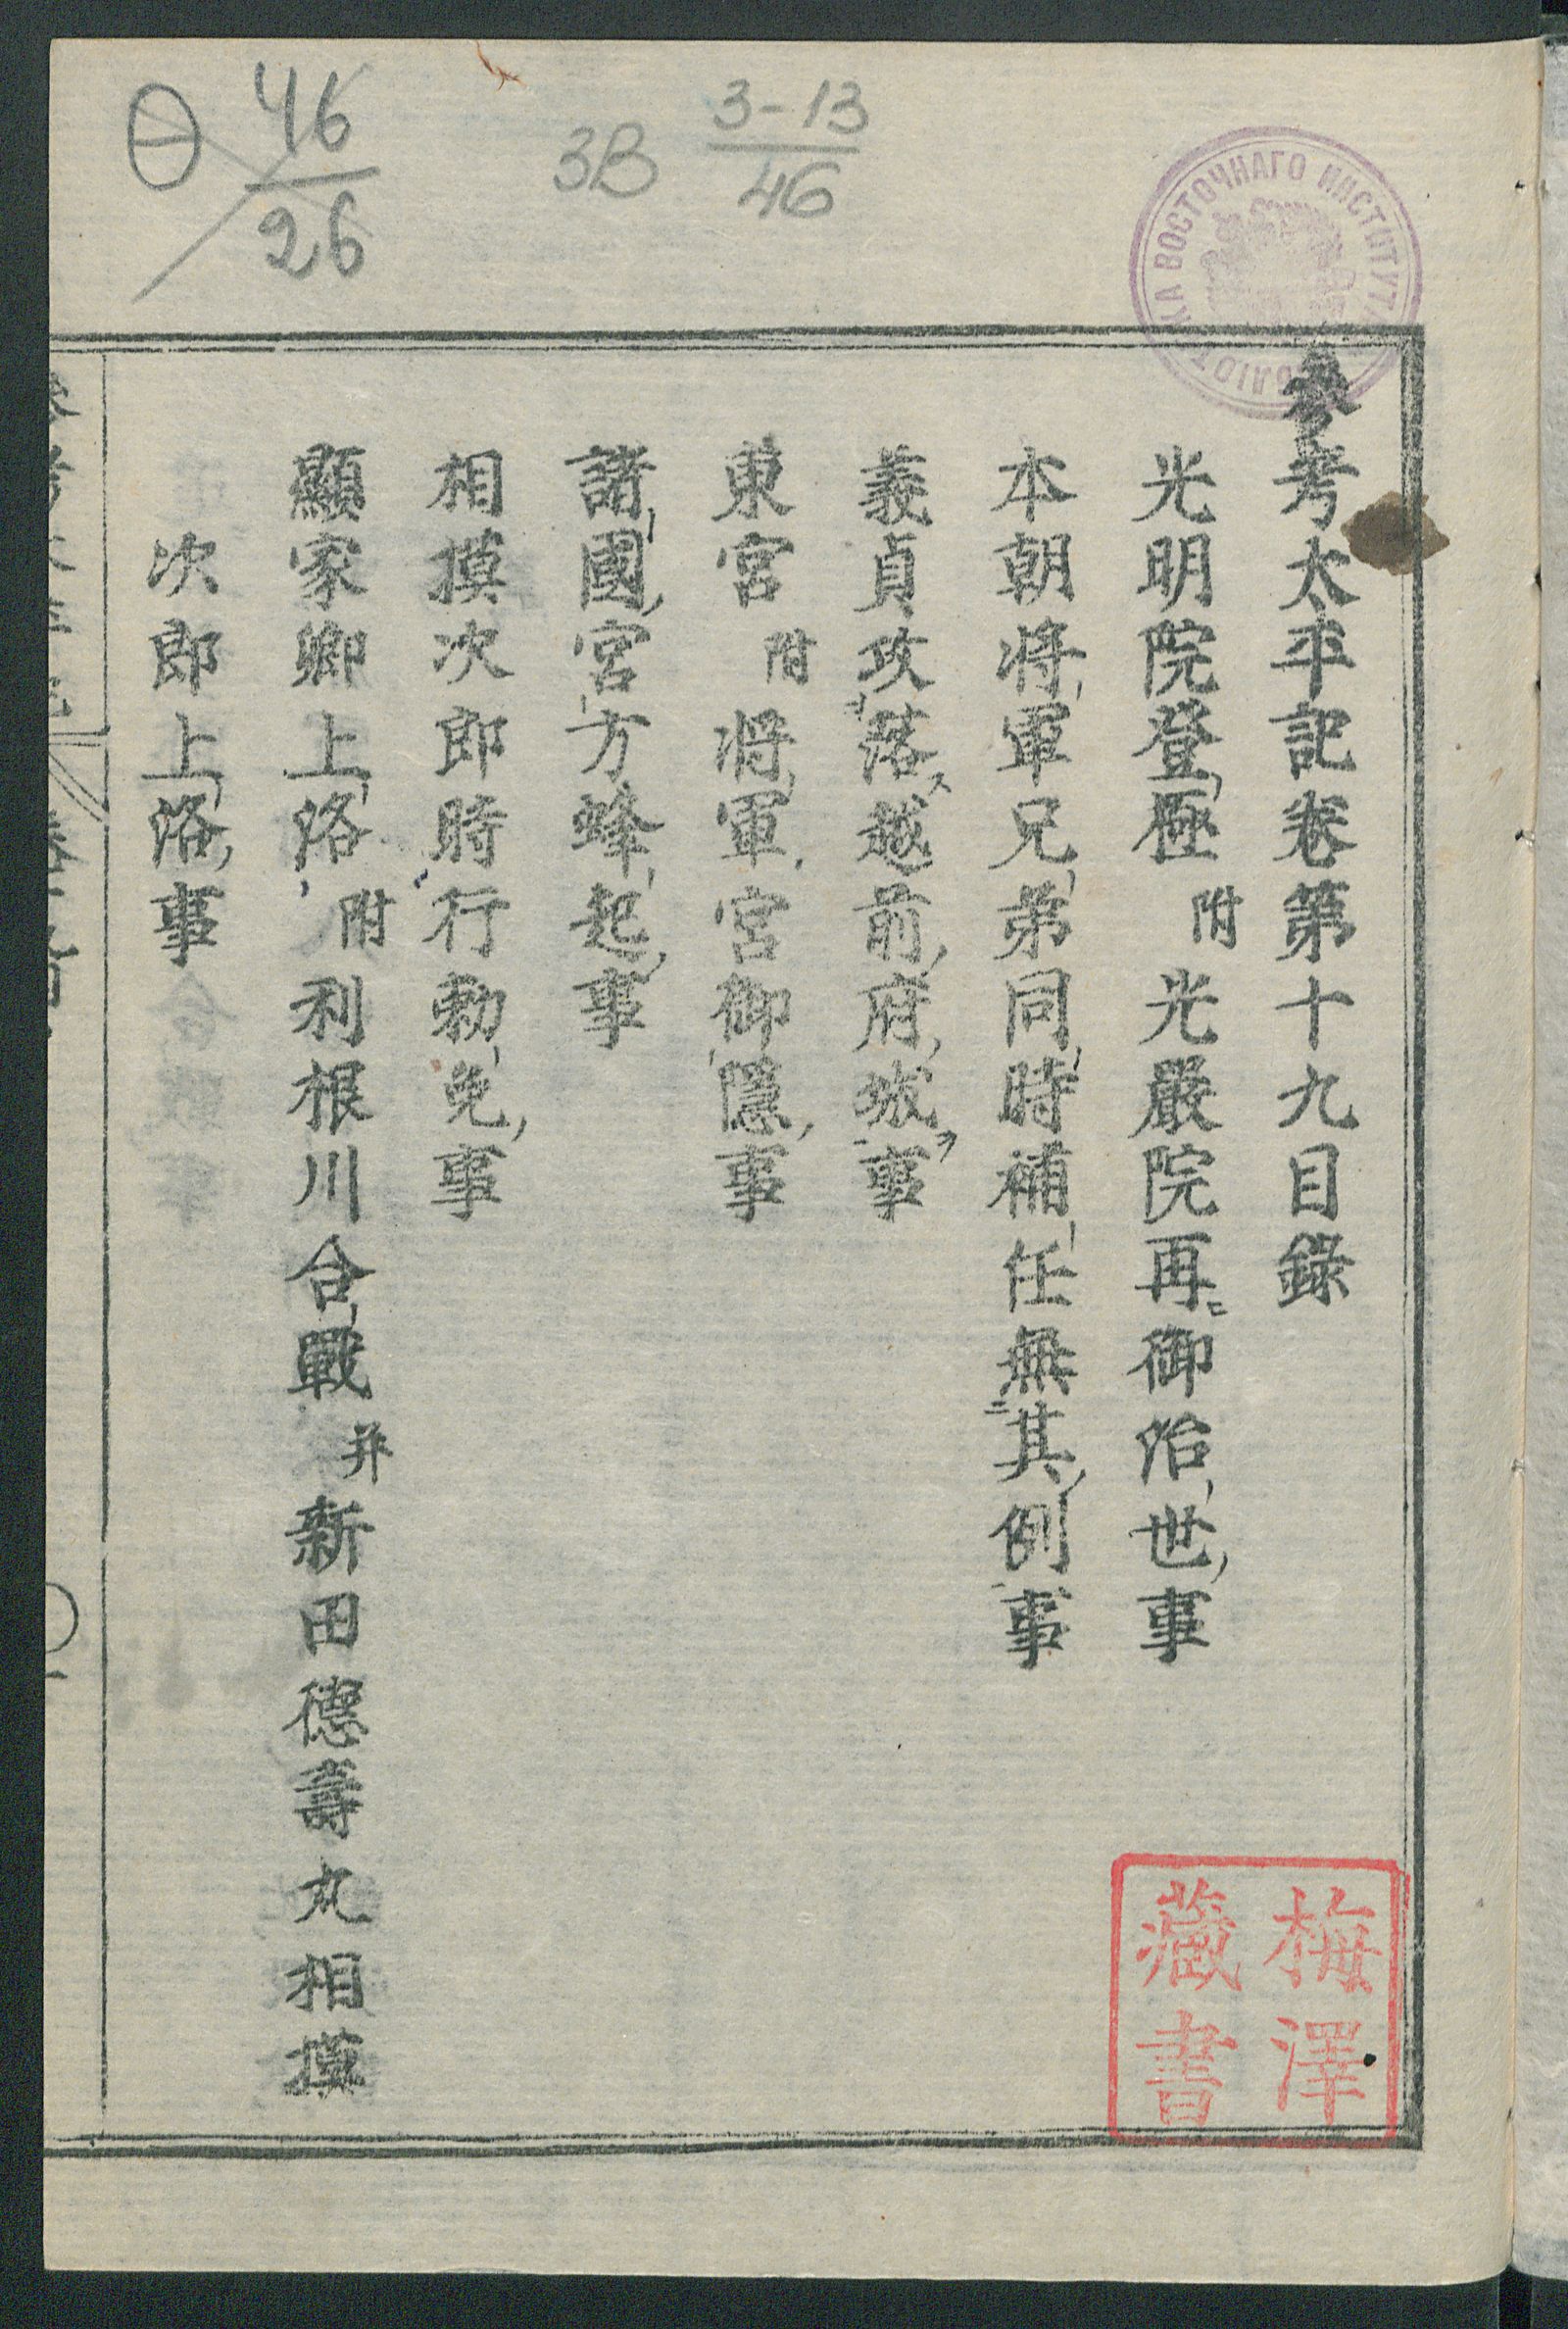 參考太平記卷第十九目錄
光明院登極 附 光嚴院再ニ御治世事
本朝將軍兄弟同時補任無ニ其例事
義貞攻落ス越前府城ヲ事
東宮 附 將軍宮御隱事
諸國宮方蜂起事
相摸次郎時行勅免事
顯家卿上洛 附 利根川合戰 并 新田德壽丸相摸
次郎上洛事
梅澤
藏書
46
26
3B
3-13
46
КА ВОСТОЧНАГО ИНСТИТУТА